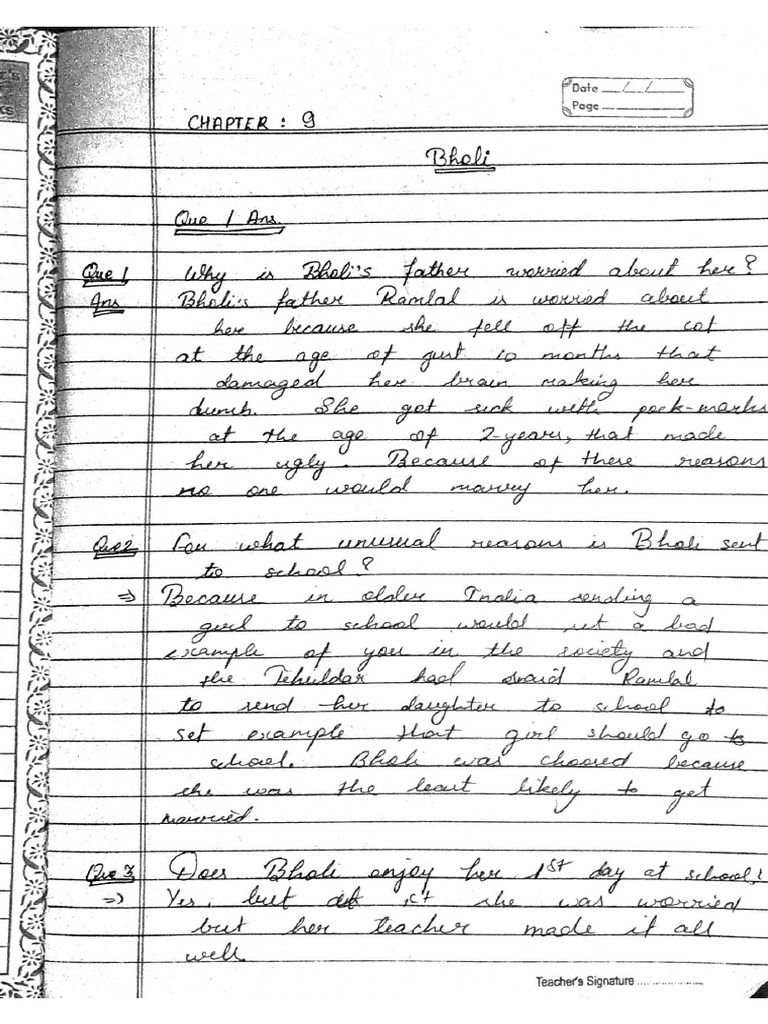 Date / /
Page
CHAPTER : 9
Bholi
Que / Ans.
Que 1 Why is Bholi's father worried about her?
Ans Bholi's father Ramlal is worred about
her because she fell off the cot
at the age of just 10 months that
damaged her brain making her
dumb. She got sick with pock-marks
at the age of 2-years, that made
her ugly. Because of these reasons
no one would marry her.
Que2 For what unusual reasons is Bholi sent
to school?
⇒ Because in older India sending a
girl to school would set a bad
example of you in the society and
the Tehuldar had said Ramlal
to send her daughter to school to
set example that girl should go to
school. Bholi was choosed because
she was the least likely to get
married.
Que 3 Does Bholi enjoy her 1st day at school?
⇒ Yes, but at 1st she was worried
but her teacher made it all
well.
Teacher's Signature